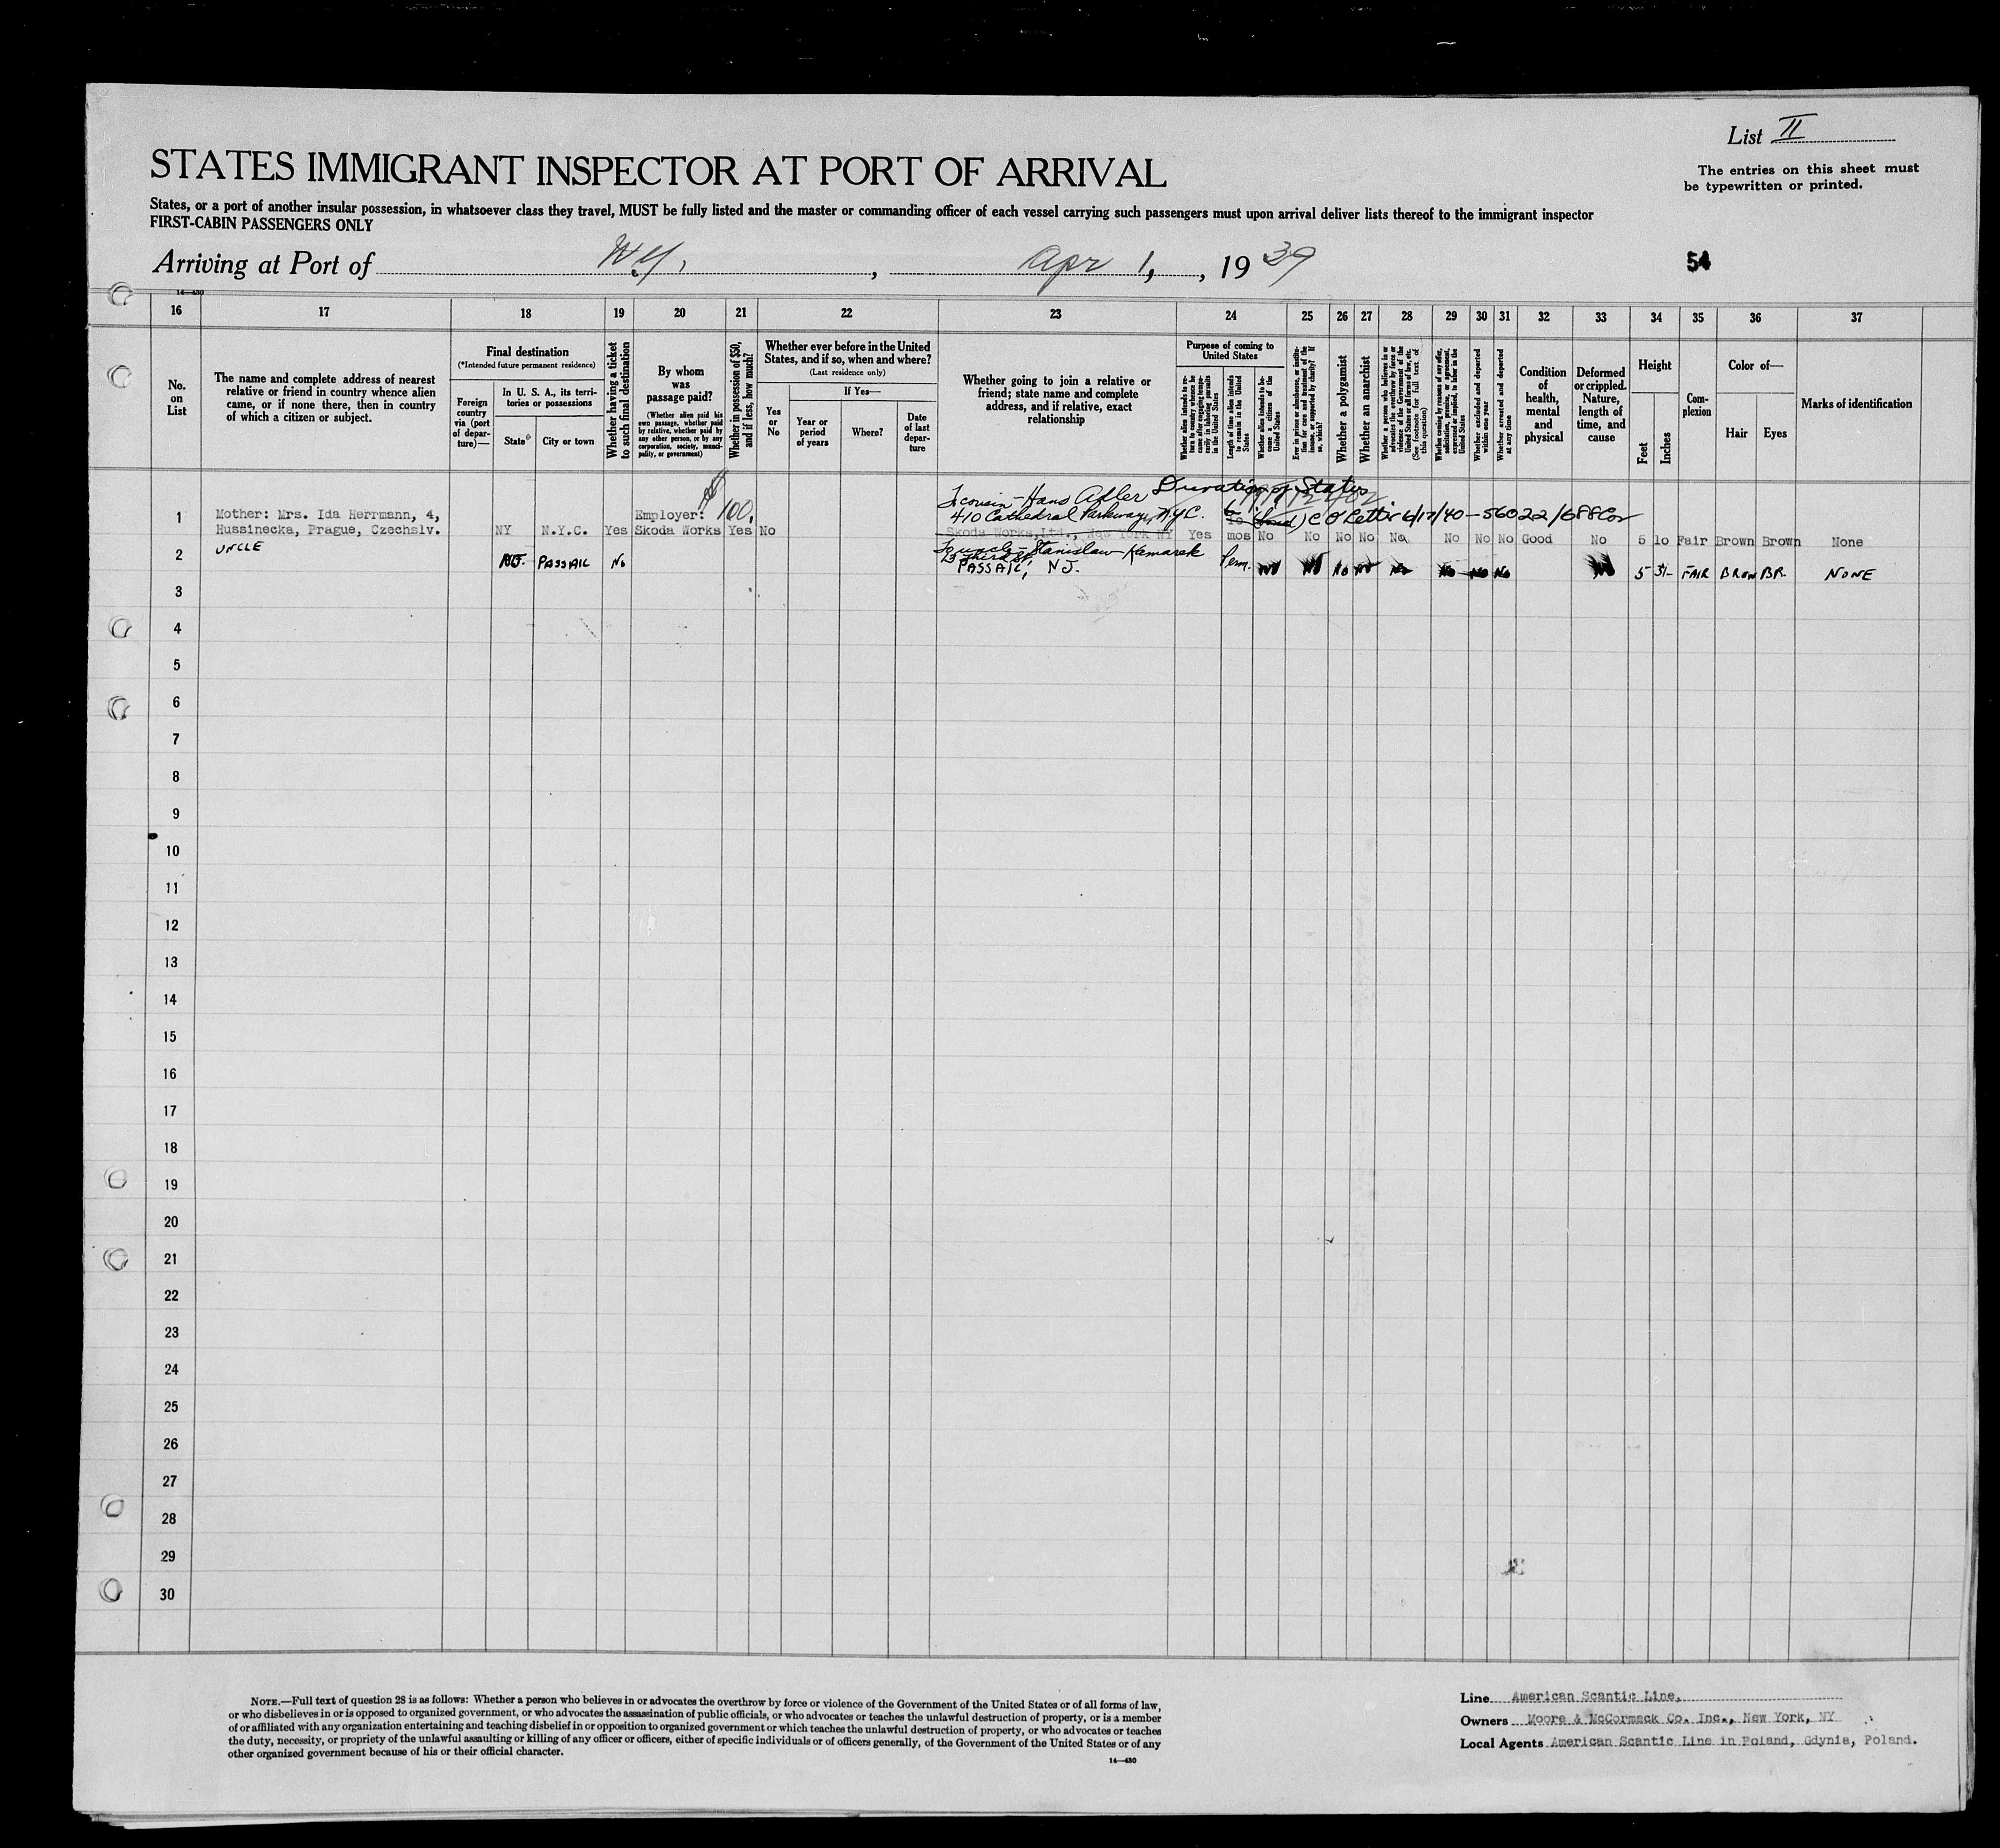 List II
The entries on this sheet must
be typewritten or printed.
STATES IMMIGRANT INSPECTOR AT PORT OF ARRIVAL
States, or a port of another insular possession, in whatsoever class they travel, MUST be fully listed and the master or commanding officer of each vessel carrying such passengers must upon arrival deliver lists thereof to the immigrant inspector
FIRST-CABIN PASSENGERS ONLY
Arriving at Port of N.Y., Apr 1, 1939
54
14—430
16 17 18 19 20 21 22 23 24 25 26 27 28 29 30 31 32 33 34 35 36 37
No.
on
List
The name and complete address of nearest
relative or friend in country whence alien
came, or if none there, then in country
of which a citizen or subject.
Final destination
(*Intended future permanent residence)
Foreign
country
via (port
of depar-
ture)—
In U. S. A., its terri-
tories or possessions
State*
City or town
Whether having a ticket
to such final destination
By whom
was
passage paid?
(Whether alien paid his
own passage, whether paid
by relative, whether paid by
any other person, or by any
corporation, society, munci-
pality, or government)
Whether in possession of $50,
and if less, how much?
Whether ever before in the United
States, and if so, when and where?
(Last residence only)
Yes
or
No
If Yes—
Year or
period
of years
Where?
Date
of last
depar-
ture
Whether going to join a relative or
friend; state name and complete
address, and if relative, exact
relationship
Purpose of coming to
United States
Whether alien intends to re-
turn to country whence he
came after engaging tempo-
rarily in laboring pursuits
in the United States
Length of time alien intends
to remain in the United
States
Whether alien intends to be-
come a citizen of the
United States
Ever in prison or almshouse, or institu-
tion for care and treatment of the
insane, or supported by charity? If
so, which?
Whether a polygamist
Whether an anarchist
Whether a person who believes in or
advocates the overthrow by force or
violence of the Government of the
United States or all forms of law, etc.
(See footnote for full text of
this question)
Whether coming by reasons of any offer,
solicitation, promise, or agreement,
expressed or implied, to labor in the
United States
Whether excluded and deported
within one year
Whether arrested and deported
at any time
Condition
of
health,
mental
and
physical
Deformed
or crippled.
Nature,
length of
time, and
cause
Height
Feet
Inches
Com-
plexion
Color of—
Hair
Eyes
Marks of identification
To cousin - Hans Adler Duration of Status
410 Cathedral Parkway, N.Y.C. C O Letter 6/17/40 - 56022/688
1 Mother: Mrs. Ida Herrmann, 4, Employer: 100,
Hussinecka, Prague, Czechslv. NY N.Y.C. Yes Skoda Works Yes No Skoda Works, Ltd., New York NY Yes mos No No No No No No No No Good No 5 10 Fair Brown Brown None
2 UNCLE To uncle - Stanislaw Kamarek
NJ. PASSAIC No PASSAIC, NJ. Perm. No No No No No No No No 5 FAIR BROWN BR. NONE
3
4
5
6
7
8
9
10
11
12
13
14
15
16
17
18
19
20
21
22
23
24
25
26
27
28
29
30
NOTE.—Full text of question 28 is as follows: Whether a person who believes in or advocates the overthrow by force or violence of the Government of the United States or of all forms of law,
or who disbelieves in or is opposed to organized government, or who advocates the assassination of public officials, or who advocates or teaches the unlawful destruction of property, or is a member
of or affiliated with any organization entertaining and teaching disbelief in or opposition to organized government or which teaches the unlawful destruction of property, or who advocates or teaches
the duty, necessity, or propriety of the unlawful assaulting or killing of any officer or officers, either of specific individuals or of officers generally, of the Government of the United States or of any
other organized government because of his or their official character.
14—430
Line American Scantic Line,
Owners Moore & McCormack Co. Inc., New York, NY
Local Agents American Scantic Line in Poland, Gdynia, Poland.